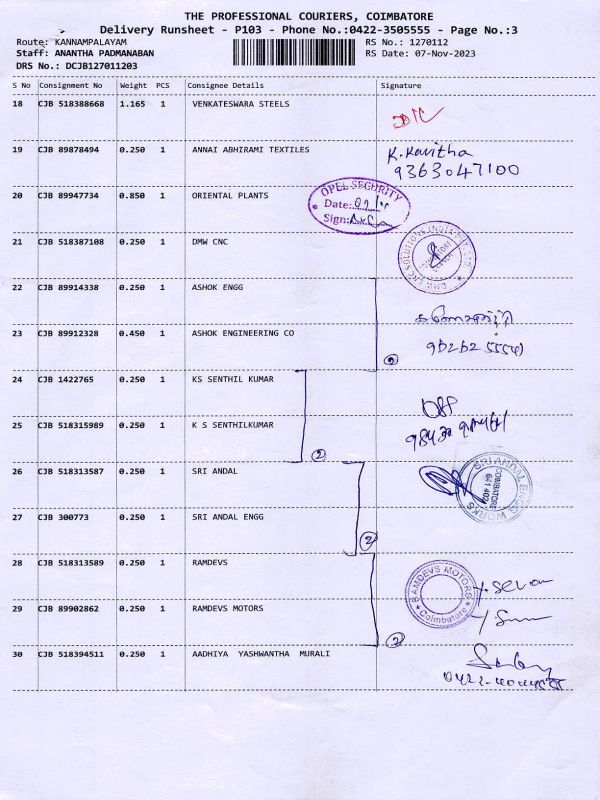 THE PROFESSIONAL COURIERS, COIMBATORE
Delivery Runsheet - P103 - Phone No.:0422-3505555 - Page No.:3
Route: KANNAMPALAYAM RS No.: 1270112
Staff: ANANTHA PADMANABAN RS Date: 07-Nov-2023
DRS No.: DCJB127011203
S No Consignment No Weight PCS Consignee Details Signature
18 CJB 518388668 1.165 1 VENKATESWARA STEELS
19 CJB 89878494 0.250 1 ANNAI ABHIRAMI TEXTILES K. Kavitha
9363047100
20 CJB 89947734 0.850 1 ORIENTAL PLANTS OPEL SECURITY
Date:
Sign:
21 CJB 518387108 0.250 1 DMW CNC
22 CJB 89914338 0.250 1 ASHOK ENGG
23 CJB 89912328 0.450 1 ASHOK ENGINEERING CO
24 CJB 1422765 0.250 1 KS SENTHIL KUMAR
25 CJB 518315989 0.250 1 K S SENTHILKUMAR
2
26 CJB 518313587 0.250 1 SRI ANDAL SRI ANDAL ENGG. WORKS
COIMBATORE
641 402
27 CJB 300773 0.250 1 SRI ANDAL ENGG
2
28 CJB 518313589 0.250 1 RAMDEVS RAMDEVS MOTORS
Coimbatore
29 CJB 89902862 0.250 1 RAMDEVS MOTORS
2
30 CJB 518394511 0.250 1 AADHIYA YASHWANTHA MURALI